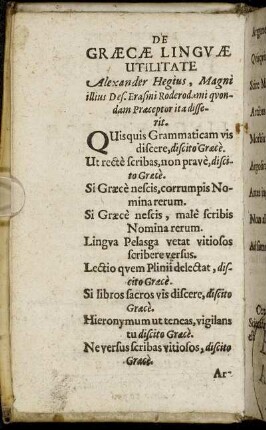 DE
GRÆCÆ LINGVÆ
UTILITATE
Alexander Hegius, Magni
illius Des. Erasini Roderodami qvon-
dam Præceptor ita disse-
rit.
QUisquis Grammaticam vis
discere, discito Græcè.
Ut rectè scribas, non pravè, disci-
to Græcè.
Si Græcè nescis, corrumpis No-
mina rerum.
Si Græcè nescis, malè scribis
Nomina rerum.
Lingva Pelasga vetat vitiosos
scribere versus.
Lectio qvem Plinii delectat, dis-
cito Græcè.
Si libros sacros vis discere, discito
Græcè.
Hieronymum ut teneas, vigilans
tu discito Græcè.
Ne versus scribas vitiosos, discito
Græcè.
Ar-